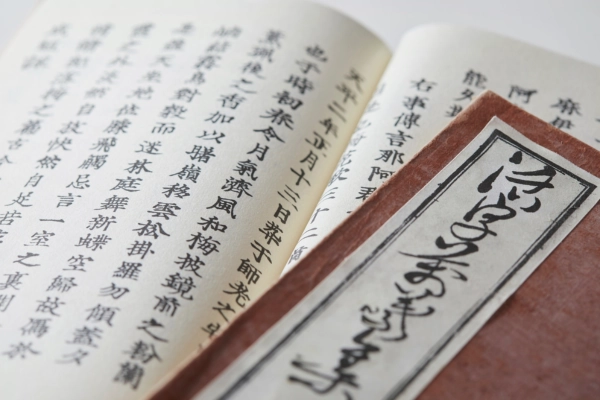 阿
右事傳言那阿
天平二年正月十三日萃于師老之
也于時初春令月氣淑風和梅披鏡前之粉蘭
薫珮後之香加以曙嶺移雲松掛羅而傾盖夕
岫結霧鳥對縠而迷林庭舞新蝶空歸故鴈於
是盖天坐地促膝飛觴忘言一室之裏開
霞之外淡然自放快然自足若非
情請紀落梅之篇古今
成短詠
活字萬葉集